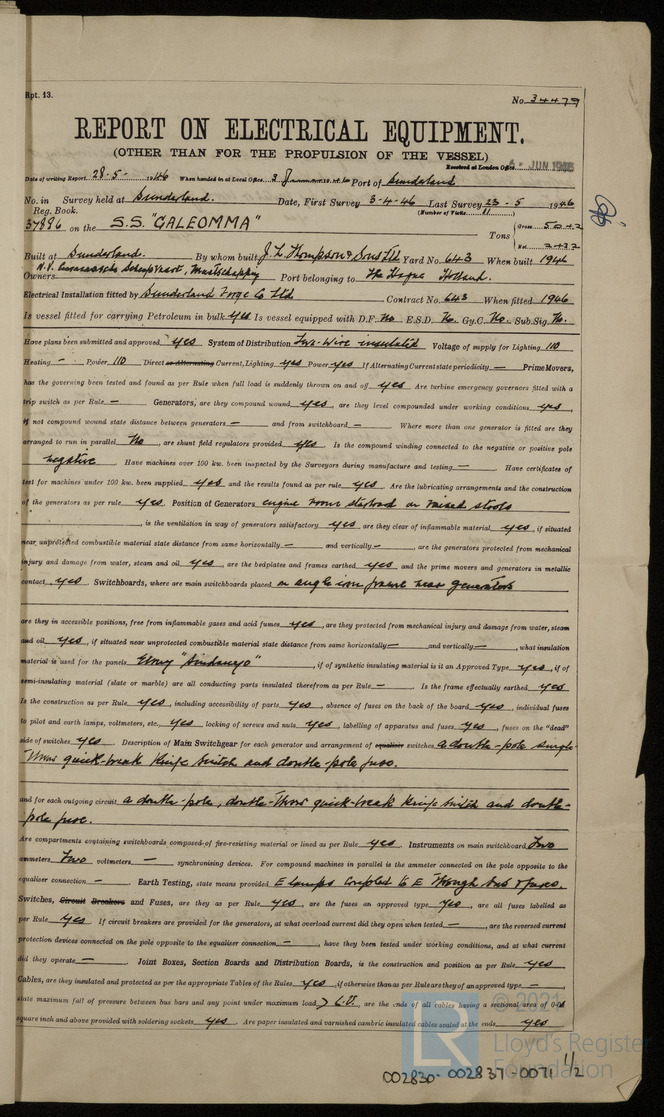 Rpt. 13.
No. 34479
REPORT ON ELECTRICAL EQUIPMENT.
(OTHER THAN FOR THE PROPULSION OF THE VESSEL)
Received at London Office JUN 1946
Date of writing Report 28-5- 1946 When handed in at Local Office 3 19 46 Port of Sunderland
No. in Survey held at Sunderland. Date, First Survey 3-4-46 Last Survey 23-5 1946
Reg. Book. (Number of Visits 11)
37896 on the S.S. "GALEOMMA" Tons { Gross 5042 Net 2432
Built at Sunderland. By whom built J. L. Thompson & Sons Ltd Yard No. 643 When built 1946
Owners N.V. Maatschappij Port belonging to The Hague Holland.
Electrical Installation fitted by Sunderland Forge Co Ltd Contract No. 643 When fitted 1946
Is vessel fitted for carrying Petroleum in bulk yes Is vessel equipped with D.F. No E.S.D. No Gy.C. No Sub.Sig. No.
Have plans been submitted and approved yes System of Distribution Two-Wire insulated Voltage of supply for Lighting 110
Heating - Power 110 Direct or Alternating Current, Lighting yes Power yes If Alternating Current state periodicity — Prime Movers,
has the governing been tested and found as per Rule when full load is suddenly thrown on and off yes Are turbine emergency governors fitted with a
trip switch as per Rule — Generators, are they compound wound yes, are they level compounded under working conditions yes,
if not compound wound state distance between generators — and from switchboard — Where more than one generator is fitted are they
arranged to run in parallel No, are shunt field regulators provided yes Is the compound winding connected to the negative or positive pole
negative Have machines over 100 kw. been inspected by the Surveyors during manufacture and testing — Have certificates of
test for machines under 100 kw. been supplied yes and the results found as per rule yes Are the lubricating arrangements and the construction
of the generators as per rule yes Position of Generators engine room starboard on raised stools
, is the ventilation in way of generators satisfactory yes are they clear of inflammable material yes, if situated
near unprotected combustible material state distance from same horizontally — and vertically —, are the generators protected from mechanical
injury and damage from water, steam and oil yes, are the bedplates and frames earthed yes and the prime movers and generators in metallic
contact yes Switchboards, where are main switchboards placed on angle iron frame near generators
are they in accessible positions, free from inflammable gases and acid fumes yes, are they protected from mechanical injury and damage from water, steam
and oil yes, if situated near unprotected combustible material state distance from same horizontally — and vertically —, what insulation
material is used for the panels Ebony "Sindanyo", if of synthetic insulating material is it an Approved Type yes, if of
semi-insulating material (slate or marble) are all conducting parts insulated therefrom as per Rule — Is the frame effectually earthed yes
Is the construction as per Rule yes, including accessibility of parts yes, absence of fuses on the back of the board yes, individual fuses
to pilot and earth lamps, voltmeters, etc., yes locking of screws and nuts yes, labelling of apparatus and fuses yes, fuses on the "dead"
side of switches yes Description of Main Switchgear for each generator and arrangement of equaliser switches a double-pole single-
throw quick-break Knife switch and double pole fuse.
and for each outgoing circuit a double-pole, double-throw quick-break Knife switch and double-
pole fuse.
Are compartments containing switchboards composed of fire-resisting material or lined as per Rule yes Instruments on main switchboard Two
ammeters Two voltmeters — synchronising devices. For compound machines in parallel is the ammeter connected on the pole opposite to the
equaliser connection — Earth Testing, state means provided E lamps coupled to E through and fuses.
Switches, Circuit Breakers and Fuses, are they as per Rule yes, are the fuses an approved type yes, are all fuses labelled as
per Rule yes If circuit breakers are provided for the generators, at what overload current did they open when tested —, are the reversed current
protection devices connected on the pole opposite to the equaliser connection —, have they been tested under working conditions, and at what current
did they operate — Joint Boxes, Section Boards and Distribution Boards, is the construction and position as per Rule yes
Cables, are they insulated and protected as per the appropriate Tables of the Rules yes, if otherwise than as per Rule are they of an approved type —
state maximum fall of pressure between bus bars and any point under maximum load , are the ends of all cables having a sectional area of 0·04
square inch and above provided with soldering sockets yes Are paper insulated and varnished cambric insulated cables sealed at the ends yes
© 2021
LR
Lloyd's Register
Foundation
002830-002837-0071 1/2